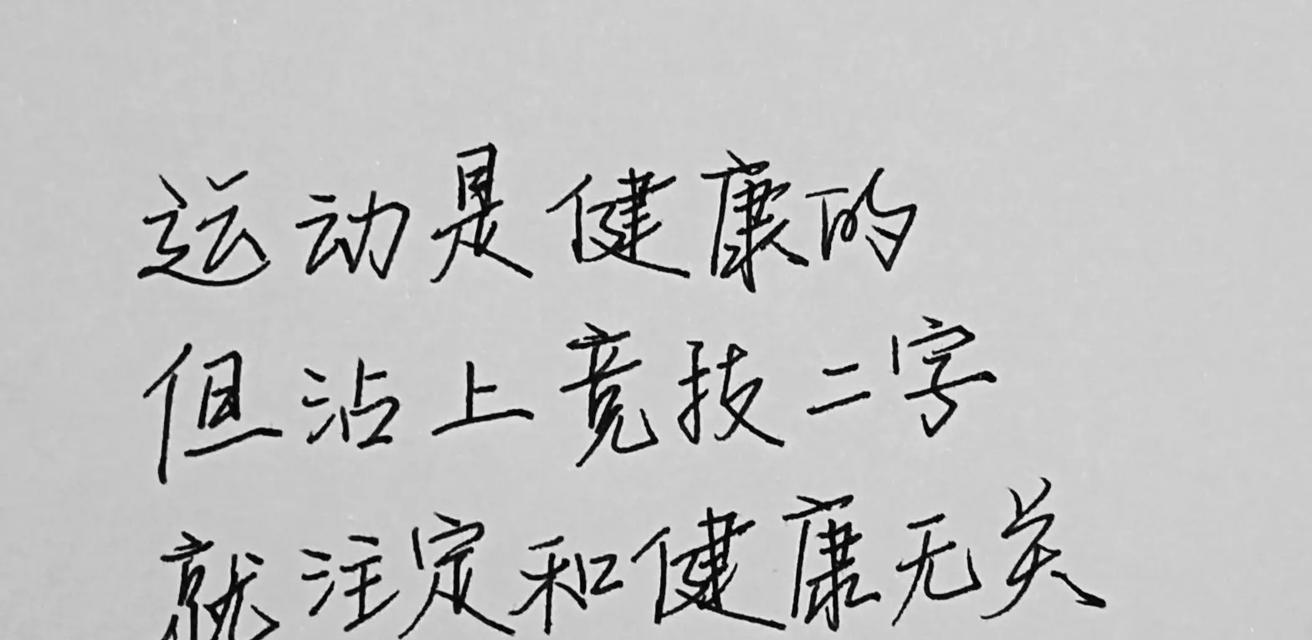 运动是健康的
但沾上竞技二字
就注定和健康无关